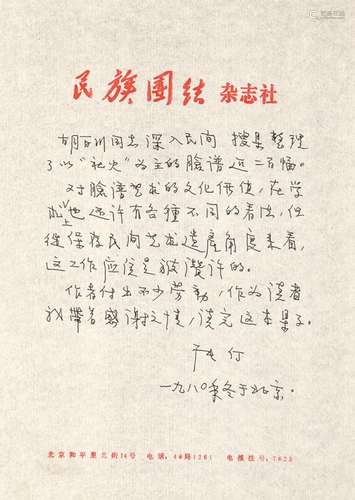 民族團结 杂志社
胡百川同志深入民间 搜集整理
了以“社火”为主的臉谱近二百幅。
对臉谱艺术的文化價值，在学
术上也远许有各種不同的看法，但
從保存民间艺术遗產角度来看，
这工作应该是被讚许的。
作者付出不少劳動，作为读者
我带着感谢之情，读完这本集子。
一九八〇年冬于北京.
北京和平里北街14号 电话，46局(26) 电报挂号，7623